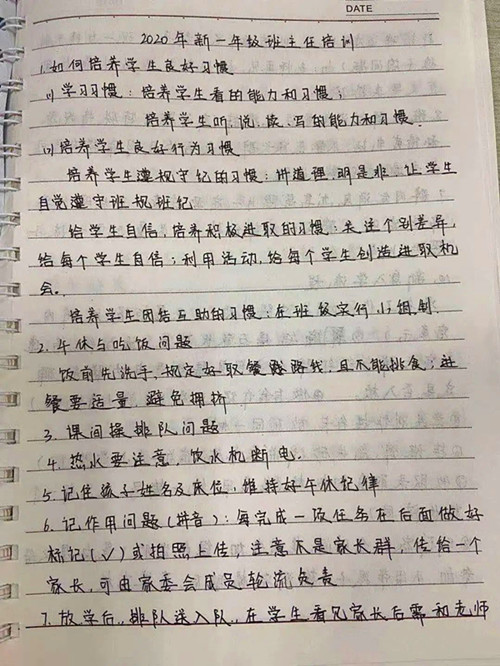 DATE
2020年新一年级班主任培训
1.如何培养学生良好习惯
(1)学习习惯：培养学生看的能力和习惯；
培养学生听、说、读、写的能力和习惯
(2)培养学生良好行为习惯
培养学生遵规守纪的习惯：讲道理、明是非、让学生
自觉遵守班规班纪
给学生自信，培养积极进取的习惯：关注个别差异，
给每个学生自信；利用活动，给每个学生创造进取机
会。
培养学生团结互助的习惯：在班级实行小组制.
2.午休与吃饭问题
饭前先洗手，规定好取餐路线，且不能挑食；进
餐要适量，避免拥挤
3.课间操排队问题
4.热水要注意，饮水机断电.
5.记住孩子姓名及床位，维持好午休纪律
6.记作用问题(拼音)：每完成一项任务在后面做好
标记(√)或拍照上传，注意不是家长群，传给一个
家长，可由家委会成员轮流负责
7.放学后，排队送入队，在学生看见家长后需和老师